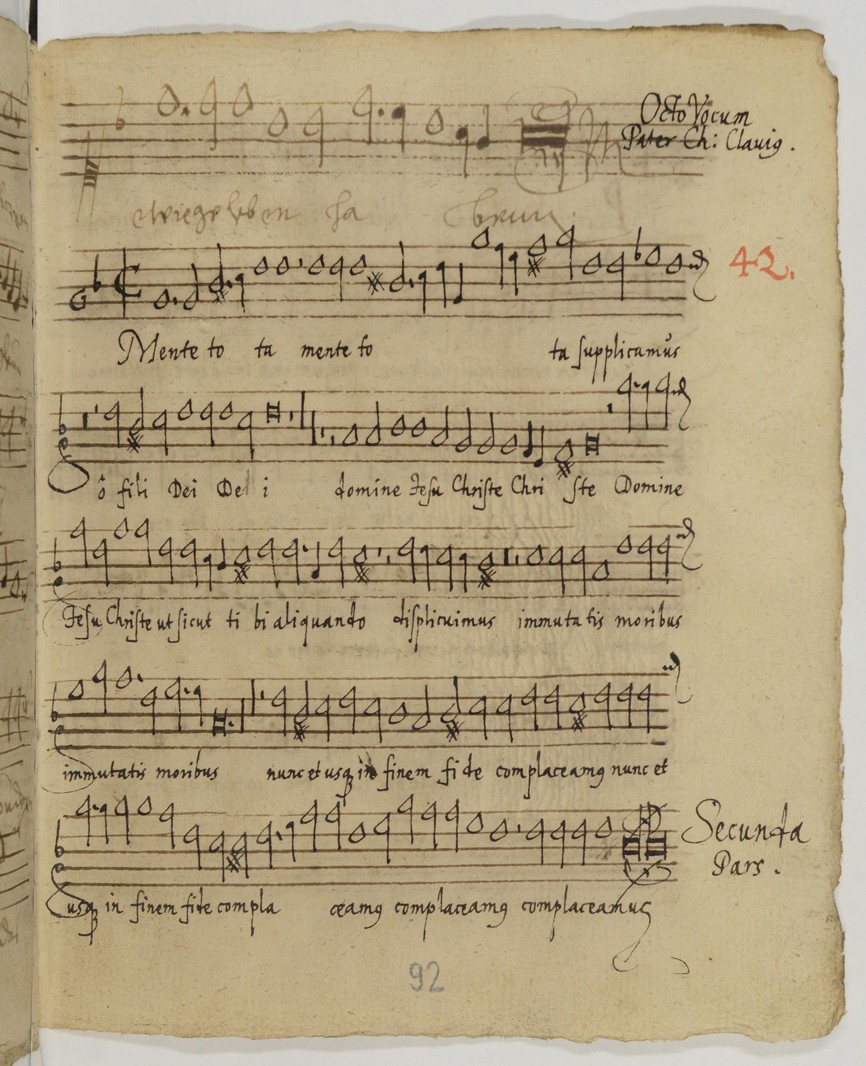 Octo Vocum
Pater Ch: Clavig.
42.
Mente to ta mente to ta supplicamus
ô fili Dei De i domine Jesu Christe Chri ste Domine
Jesu Christe ut sicut ti bi aliquando displicuimus immutatis moribus
immutatis moribus nunc et usq in finem fide complaceamq nunc et
usq in finem fide compla ceamq complaceamq complaceamus
Secunda
Pars.
92